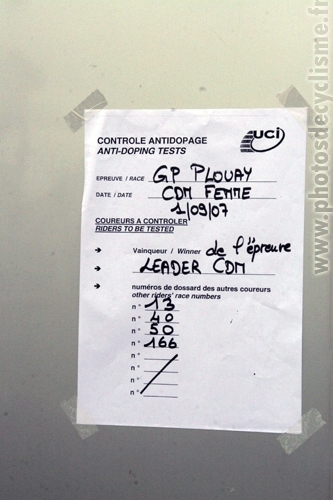 www.photosdecyclisme.fr
uci
CONTROLE ANTIDOPAGE
ANTI-DOPING TESTS
EPREUVE / RACE GP PLOUAY
DATE / DATE CDM FEMME
1/09/07
COUREURS A CONTROLER
RIDERS TO BE TESTED
→ Vainqueur / Winner de l'épreure
→ LEADER CDM
→ numéros de dossard des autres coureurs
other riders' race numbers
n° 13
n° 40
n° 50
n° 166
n°
n°
n°